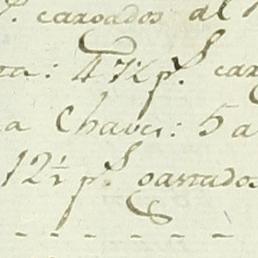 p.s caroados al
ta: 47½ p.s car
a Chaves: 5 a
12½ p.s gastados